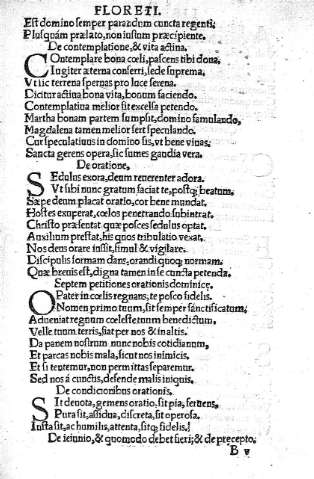 FLORETI.
Est domino semper parandum cuncta regenti,
Plusquám prælato, non iustum præcipiente.
De contemplatione, & vita actiua.
COntemplare bona cœli, pascens tibi dona,
Iugiter æterna conferri, sede suprema,
Vt sic terrena spernas pro luce serena.
Dicitur actiua bona vita, bonum faciendo.
Contemplatiua melior sit excelsa petendo.
Martha bonam partem sumpsit, domino famulando,
Magdalena tamen melior fert speculando.
Cur speculatiuus in domino sis, vt bene viuas:
Sancta gerens opera, sic sumes gaudia vera.
De oratione,
SEdulus exora, deum reuerenter adora.
Vt sibi nunc gratum faciat te, postq; beatum.
Sæpe deum placat oratio, cor bene mundat.
Hostes exuperat, cœlos penetrando subintrat.
Christo præsentat quæ posces sedulus optat.
Auxilium prestat, his quos tribulatio vexat.
Nos deus orare iussit, simul & vigilare.
Discipulis formam dans, orandi quoq; normam.
Quæ breuis est, digna tamen in se cuncta petenda.
Septem petitiones orationis dominicę.
OPater in cœlis regnans, te posco fidelis.
Nomen primo tuum, sit semper sanctificatum,
Adueniat regnum cœleste tuum benedictum.
Velle tuum terris, fiat per nos & in altis.
Da panem nostrum nunc nobis cotidianum,
Et parcas nobis mala, sicut nos inimicis.
Et si tentemur, non permittas separemur.
Sed nos á cunctis, defende malis iniquis.
De condicioribus orationis.
SIt deuota, gemens oratio, sit pia, feruens,
Pura sit, assidua, discreta, sit operosa.
Iusta sit, ac humilis, attenta, sitq; fidelis.
De ieiunio, & quomodo debet fieri; & de precepto.
B v